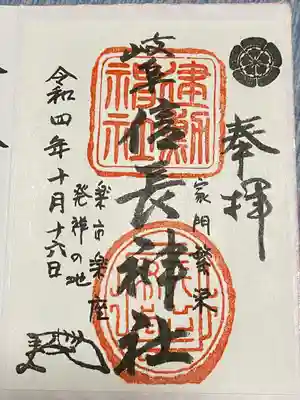 奉拝
家門繁栄
岐阜信長神社
楽市楽座
発祥の地
令和四年十月十六日